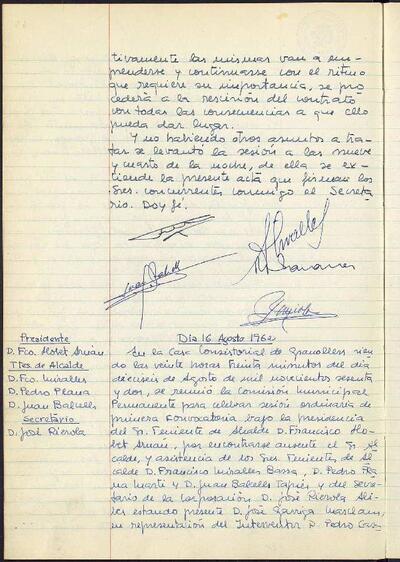 tivamente las mismas van a em-
prenderse y continuarse con el ritmo
que requiere su importancia, se pro
cederá a la rescisión del contrato
con todas las consecuencias a que ello
pueda dar lugar.
Y no habiendo otros asuntos a tra-
tar se levantó la sesión a las nueve
y cuarto de la noche, de ella se ex-
tiende la presente acta que firman los
Sres. concurrentes conmigo el Secreta
rio. Doy fé.
Presidente
D. Fco. Llobet Arnán
Ttes de Alcalde
D. Fco. Miralles
D. Pedro Plana
D. Juan Balcells
Secretario
D. José Rierola
Día 16 Agosto 1962
En la Casa Consistorial de Granollers sien
do las veinte horas treinta minutos del día
dieciseis de Agosto de mil novecientos sesenta
y dos, se reunió la Comisión Municipal
Permanente para celebrar sesión ordinaria de
primera Convocatoria bajo la presidencia
del Sr. Teniente de Alcalde D. Francisco Llo
bet Arnán, por encontrarse ausente el Sr. Al
calde, y asistencia de los Sres. Tenientes de Al
calde D. Francisco Miralles Bassa, D. Pedro Pla
na Martí y D. Juan Balcells Tapies y del Secre
tario de la Corporación D. José Rierola
estando presente D. José Garriga
en representación del Interventor D. Pedro